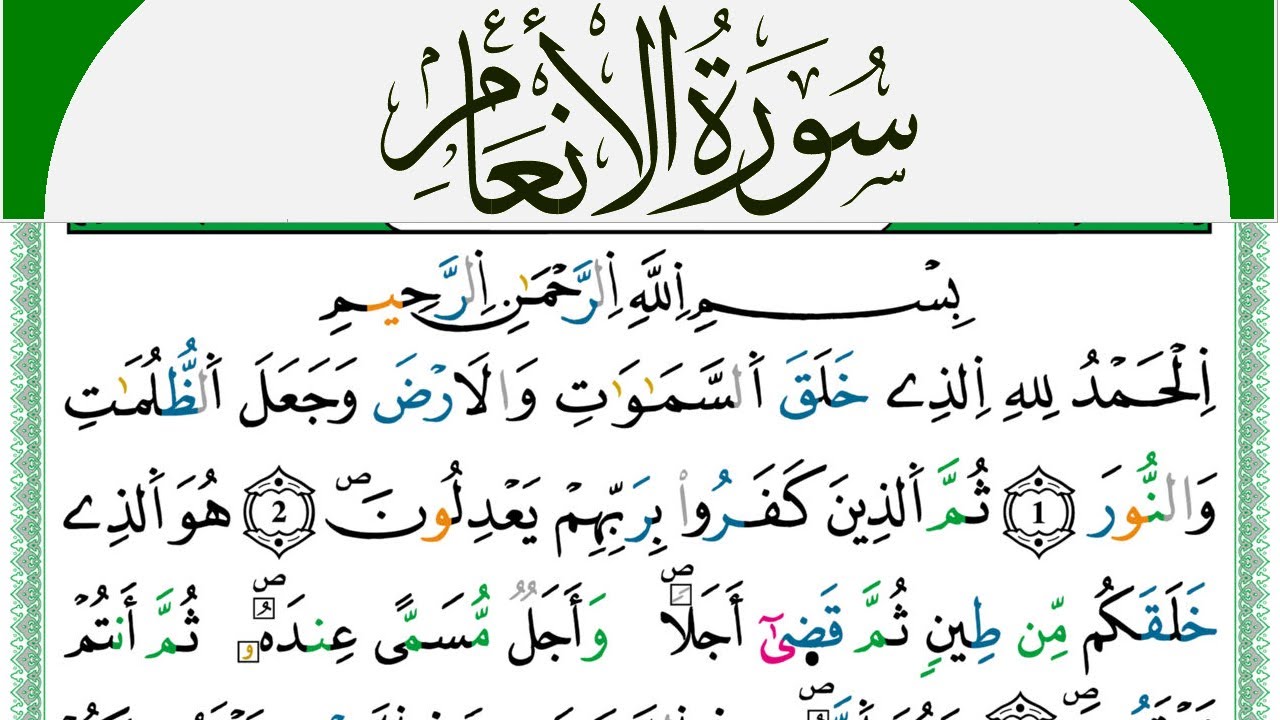 سُورَةُ الأَنْعَامِ
بِسْمِ اِللَّهِ اِلرَّحْمَٰنِ اِلرَّحِيمِ
اِلْحَمْدُ لِلهِ اِلذِے خَلَقَ اَلسَّمَٰوَٰتِ وَالَارْضَ وَجَعَلَ اَلظُّلُمَٰتِ
وَالنُّورَ 1 ثُمَّ اَلذِينَ كَفَرُواْ بِرَبِّهِمْ يَعْدِلُونَ ص 2 هُوَ اَلذِے
خَلَقَكُم مِّن طِينٍ ثُمَّ قَضۭىٰٓ أَجَلًا ص وَأَجَلٌ مُّسَمًّى عِندَهُۥ ص ثُمَّ أَنتُمْ